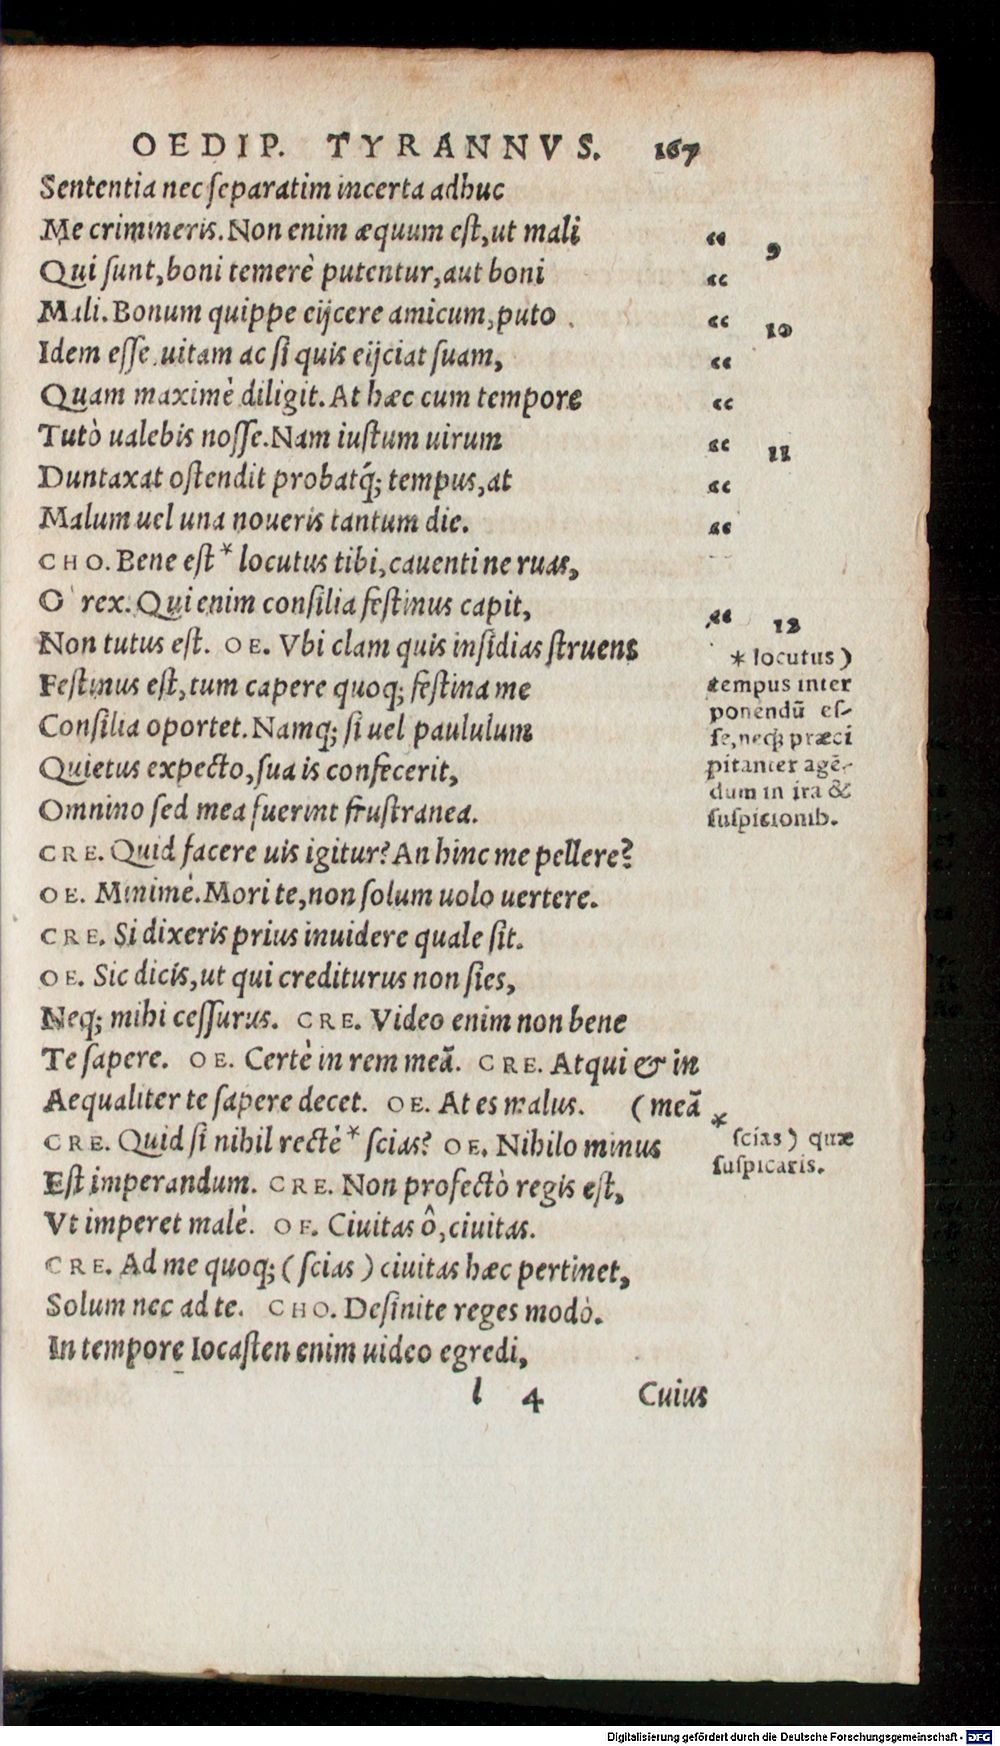 OEDIP. TYRANNVS. 167
Sententia nec separatim incerta adhuc
Me crimineris. Non enim æquum est, ut mali “ 9
Qui sunt, boni temerè putentur, aut boni “
Mali. Bonum quippe eijcere amicum, puto “ 10
Idem esse uitam ac si quis eijciat suam, “
Quam maximè diligit. At hæc cum tempore “
Tutò ualebis nosse. Nam iustum uirum “ 11
Duntaxat ostendit probatq́; tempus, at “
Malum uel una noueris tantum die. “
CHO. Bene est * locutus tibi, cauenti ne ruas,
O rex. Qui enim consilia festinus capit, “ 12
Non tutus est. OE. Vbi clam quis insidias struens
Festinus est, tum capere quoq; festina me
Consilia oportet. Namq; si uel paululum
Quietus expecto, sua is confecerit,
Omnino sed mea fuerint frustranea.
* locutus)
tempus inter
ponendũ es-
se, neq́; præci
pitanter agẽ-
dum in ira &
suspicionib.
CRE. Quid facere uis igitur? An hinc me pellere?
OE. Minimè. Mori te, non solum uolo uertere.
CRE. Si dixeris prius inuidere quale sit.
OE. Sic dicis, ut qui crediturus non sies,
Neq; mihi cessurus. CRE. Video enim non bene
Te sapere. OE. Certè in rem meã. CRE. Atqui & in
Aequaliter te sapere decet. OE. At es malus. (meã
CRE. Quid si nihil rectè * scias? OE. Nihilo minus
* scias) quæ
suspicaris.
Est imperandum. CRE. Non profectò regis est,
Vt imperet malè. OE. Ciuitas ô, ciuitas.
CRE. Ad me quoq; (scias) ciuitas hæc pertinet,
Solum nec ad te. CHO. Desinite reges modò.
In tempore Iocasten enim uideo egredi,
l 4 Cuius
Digitalisierung gefördert durch die Deutsche Forschungsgemeinschaft - DFG